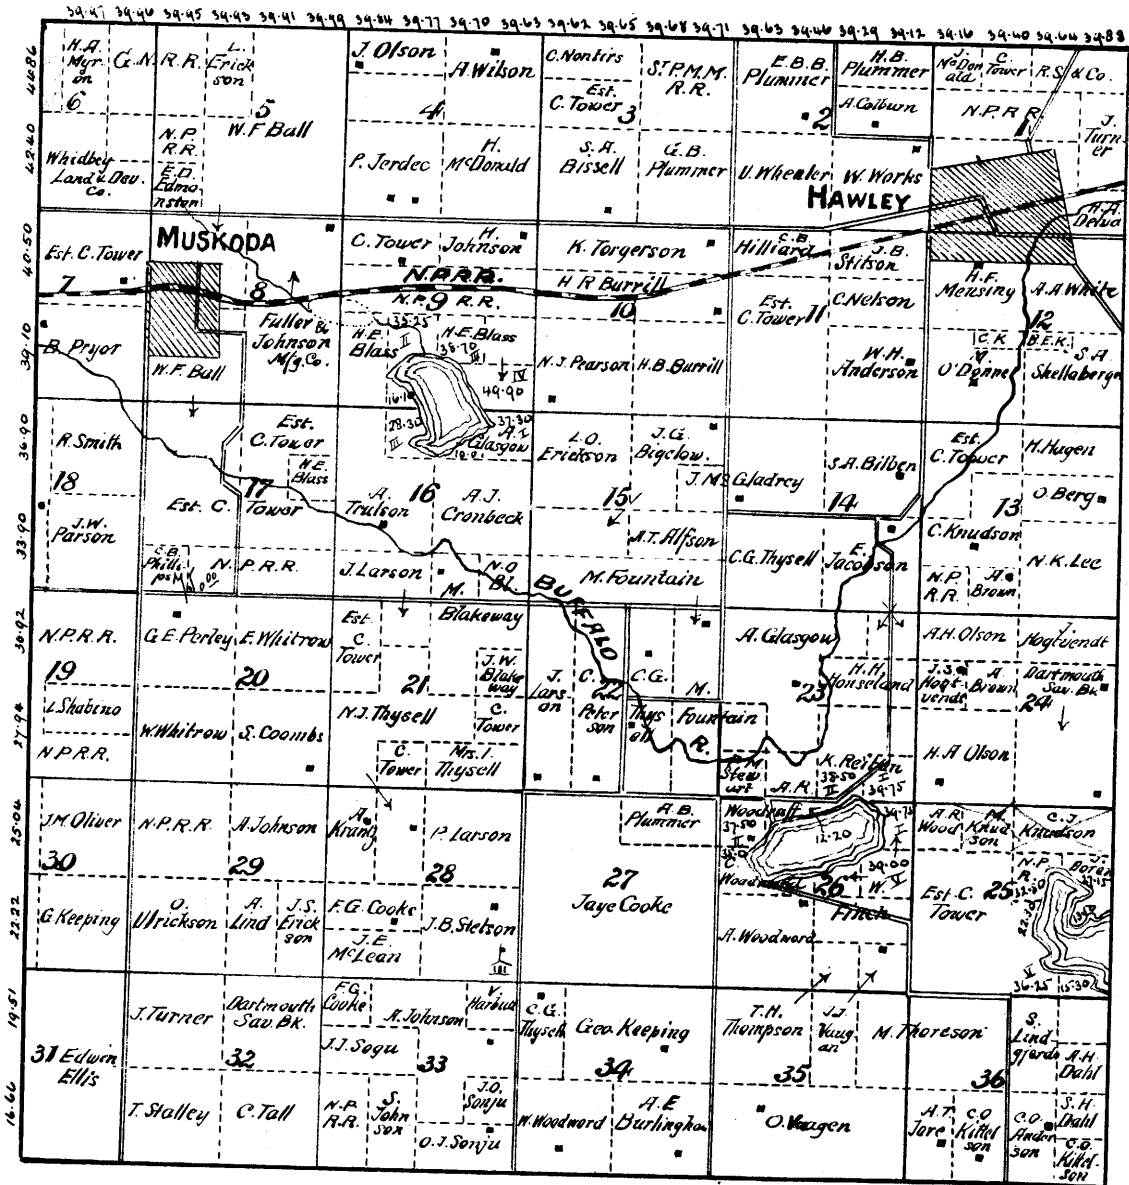 39.97 39.96 39.95 39.93 39.91 39.99 39.84 39.77 39.70 39.63 39.62 39.65 39.68 39.71 39.63 39.46 39.29 39.12 39.16 39.40 39.64 39.88
44.86
42.40
40.50
39.10
36.90
33.90
30.92
27.94
25.04
22.22
19.51
16.66
H.A.
Myr
on
6
G.N.R.R.
L.
Erick
son
5
W.F Ball
N.P.
R.R.
E.D.
Edmo
nston
Whidbey
Land & Dev.
Co.
J. Olson
A. Wilson
4
P. Jerdec
H.
McDonald
C. Nontirs
Est.
C. Tower
3
St P.M.M.
R.R.
S.A.
Bissell
G.B.
Plummer
E.B.B.
Plummer
2
H.B.
Plummer
A. Colburn
U. Wheeler
W. Works
HAWLEY
J.
McDon
ald
C.
Tower
R.S. & Co.
N.P.R.R.
1
J.
Turn
er
H.A.
Est. C. Tower
7
B. Pryor
MUSKODA
8
Fuller &
Johnson
Mfg. Co.
W.F. Ball
C. Tower
H.
Johnson
N.P.R.R.
N.P. R.R.
9
H.E.
Blass
35.25
II
H.E. Blass
38.70
III
IV
49.90
K. Torgerson
H R Burrill
10
N.J. Pearson
H.B. Burrill
C.B.
Hilliard
J.B.
Stitson
Est.
C. Tower
11
C. Nelson
W.H.
Anderson
H.F.
Mensing
A.A. White
12
C.K.
B.E.K.
O'Donnel
S.A.
Shellaberger
R. Smith
18
J.W.
Parson
Est.
C. Tower
H.E.
Blass
17
Est. C.
Tower
C.B.
Philli
ps
N.P.R.R.
28.30
III
37.30
A. I
Glasgow
A.
Trulson
16
A.J.
Cronbeck
J. Larson
N.O
Bl.
M.
Blakeway
L.O.
Erickson
J.G.
Bigelow
15
A.T. Alfson
M. Fountain
BUFFALO
R.
J. Mc Gladrey
S.A. Bilben
14
C.G. Thysell
E.
Jacobson
Est.
C. Tower
H. Hugen
13
O. Berg
C. Knudson
N.P.
R.R.
A.
Brown
N.K. Lee
N.P.R.R.
19
L. Shabino
N.P.R.R.
G.E. Perley
E. Whitrow
20
W. Whitrow
S. Coombs
Est.
C.
Tower
21
J.W.
Blake
way
N.J. Thysell
C.
Tower
C.
Tower
Mrs. I
Thysell
J.
Lars
on
C.
Peter
son
22
C.G.
Thys
ell
M.
Fountain
A. Glasgow
23
H.H.
Honseland
P.M.
Stew
art
A.R.
K. Reiben
38.50
II
I
39.75
A.H. Olson
J.
Hogtvendt
J.S.
Hogt
vendt
A.
Brown
Dartmouth
Sav. Bk.
24
H.A Olson
J.M. Oliver
30
G. Keeping
N.P.R.R.
A. Johnson
29
O.
Ulrickson
A.
Lind
J.S.
Erick
son
A.
Krantz
P. Larson
28
F.G. Cooke
J.E.
McLean
J.B. Stetson
A.B.
Plummer
27
Jaye Cooke
Woodruff
37.50
II
12.20
39.75
I
39.00
V
C.
Woodward
26
W.
Finch
A. Woodword
A.R.
Wood
M.
Knud
son
C.J.
Knudson
N.P.
R.
25
Est. C.
Tower
36.25
15.30
31 Edwin
Ellis
J. Turner
Dartmouth
Sav. Bk.
32
T. Stalley
C. Tall
F.G.
Cooke
A. Johnson
V.
J.J. Sogu
33
N.P.
R.R.
S.
John
son
J.O.
Sonju
O.J. Sonju
C.G.
Thysell
Geo. Keeping
34
W. Woodword
A.E
Burlingham
T.H.
Thompson
J.J.
Vaug
an
35
O. Vaagen
M. Thoreson
36
S.
Lind
gjords
A.H.
Dahl
A.T.
Jore
C.O
Kittel
son
C.O.
Ander
son
S.H.
Dahl
C.O.
Kittel-
son